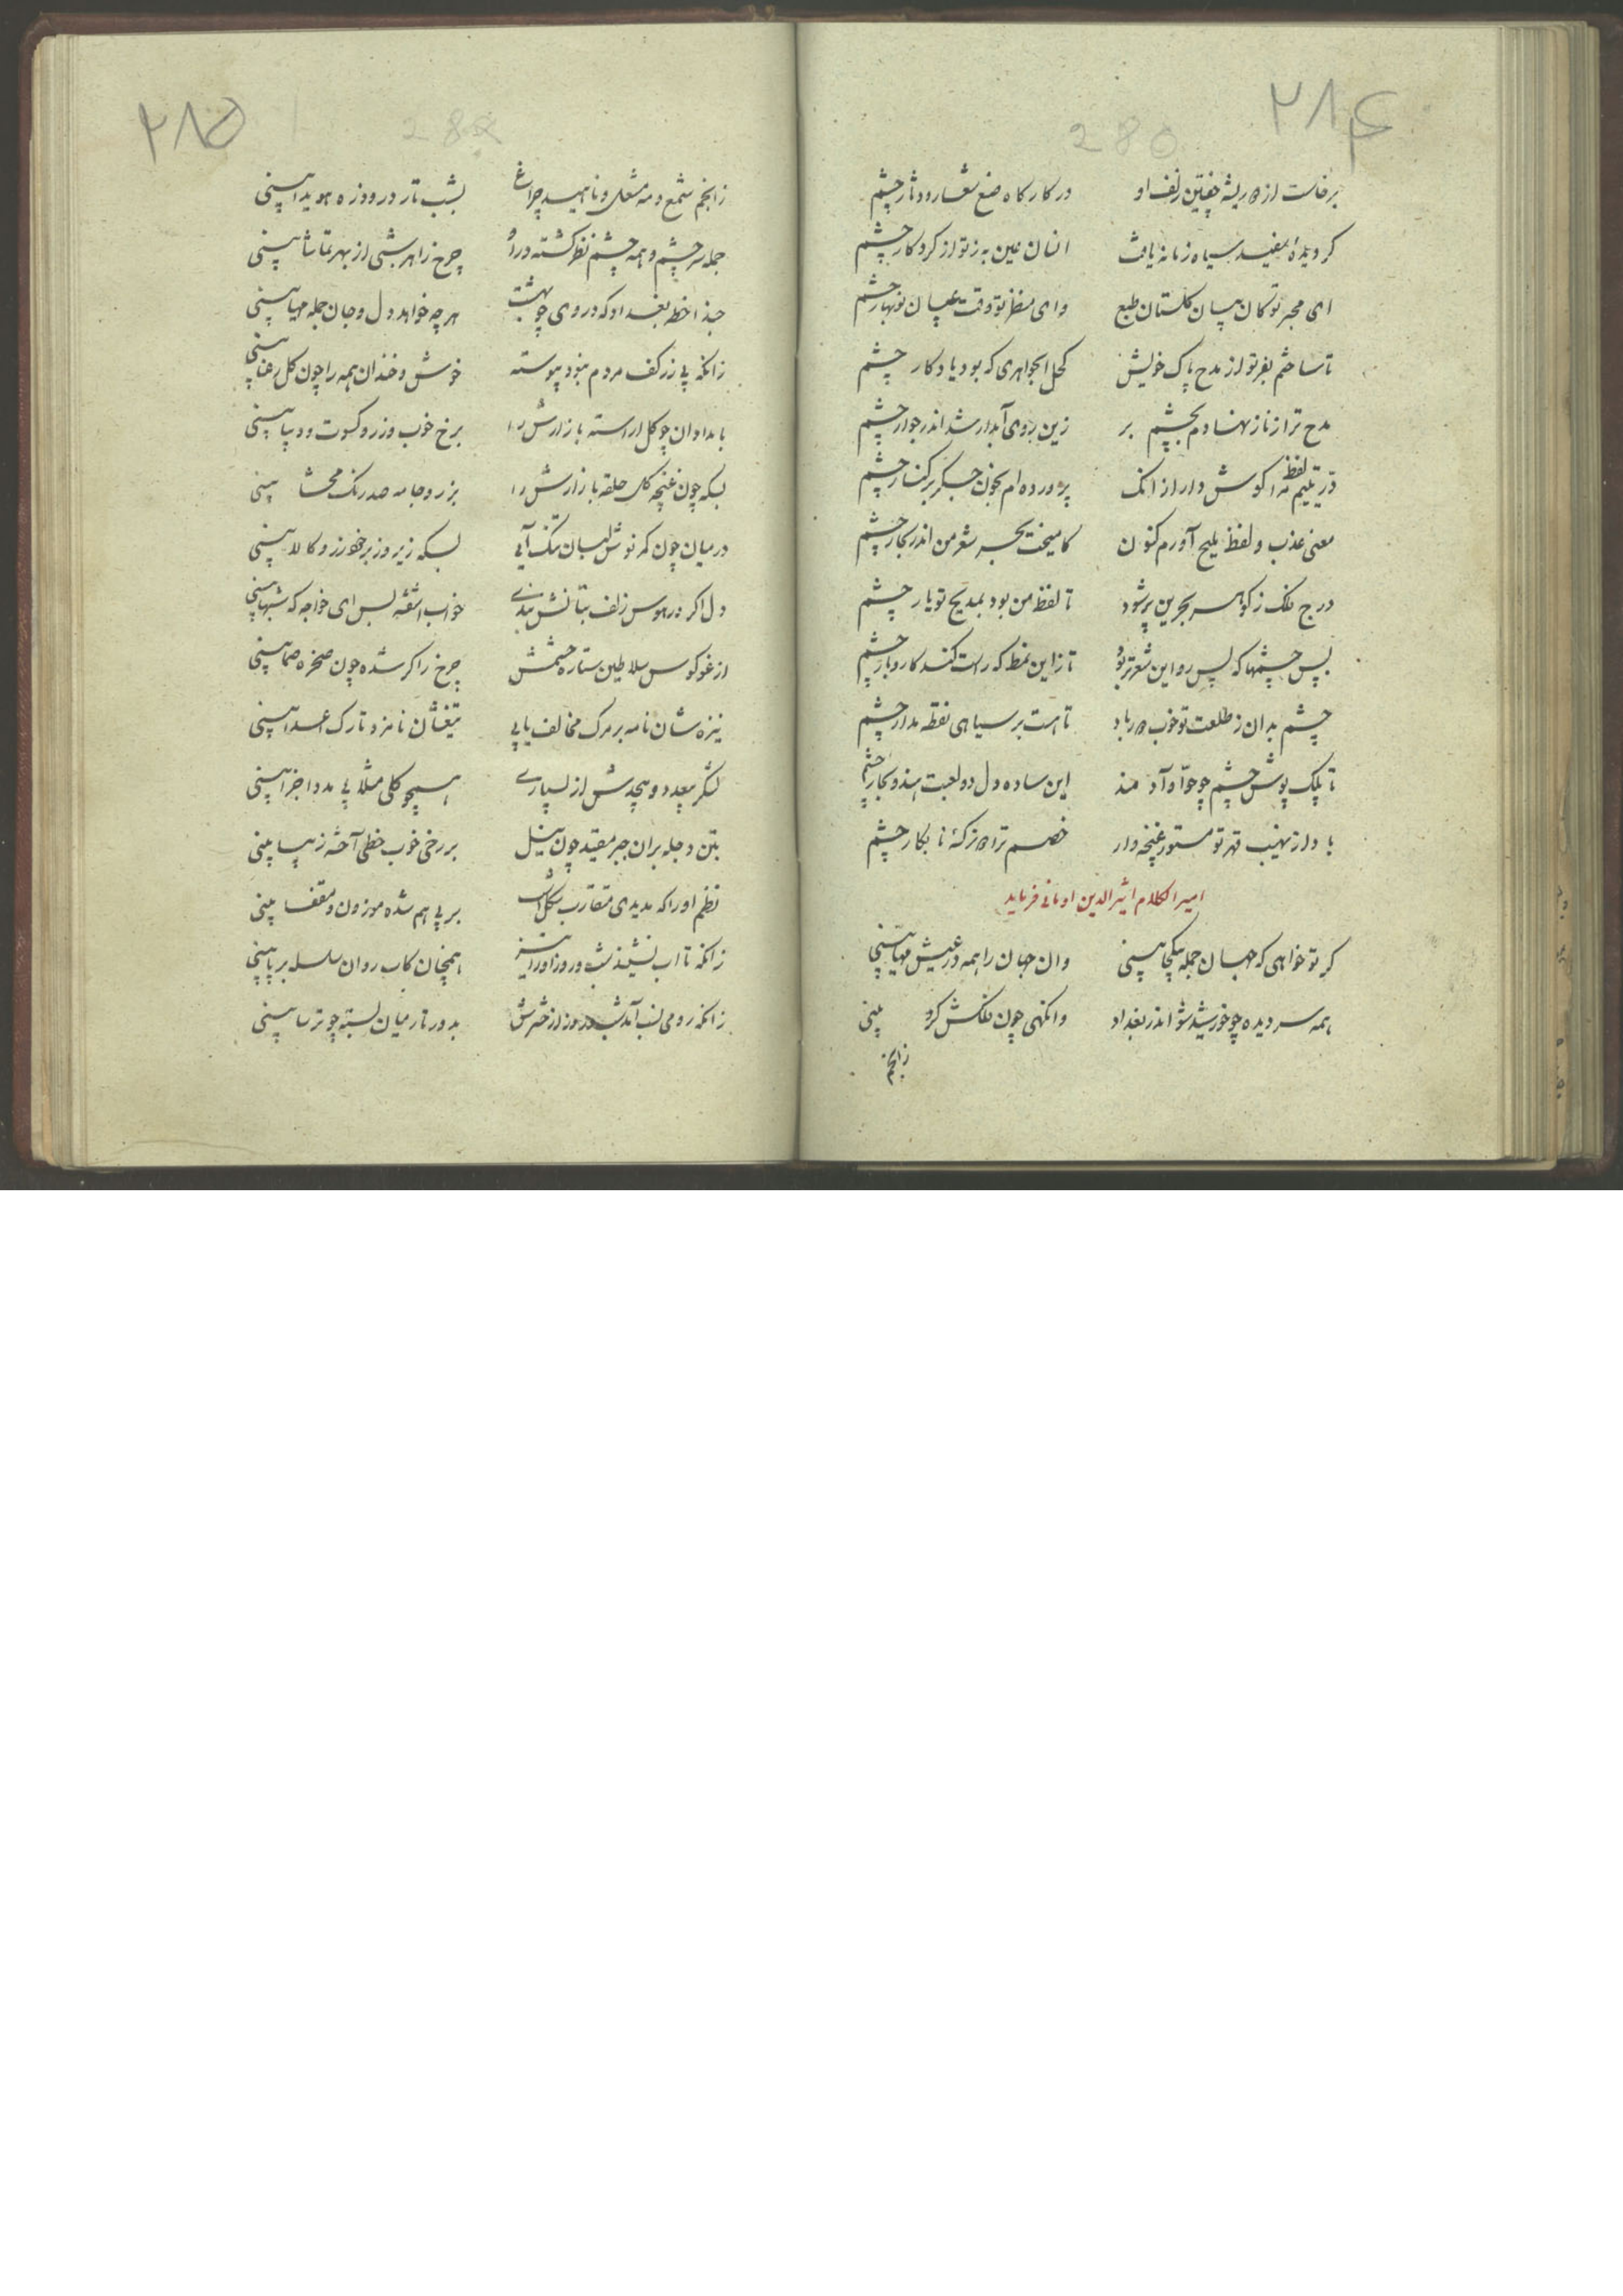 ۲۸۴
280
برخاست از ریشه جفتین زلف او در کارگاه صنع شعار و دثار چشم
کر دیده سفید سیاه زمانه یافت انسان عین به ز تو از کردکار چشم
ای مخبر تو کان بسان کلستان طبع وای منظر تو وقت عیان نوبهار چشم
تا ساختم بفر تو از مدح پاک خویش کحل الجواهری که بود یادکار چشم
مدح ترا ز ناز نهادم بچشم بر زین روی آبدار شد اندر جوار چشم
در یتیم لفظ مرا کوش دار از انک پرورده ام بخون جکر بر کنار چشم
معنی عذب و لفظ ملیح آورم کنون کامیخت بحر شعر من اندر بحار چشم
درج فلک ز کوهر بحرین پر شود تا لفظ من بود بمدیح تو یار چشم
بس چشمها که پس رو این شعر تر بود تا زاین نمط که راست کند کار و بار چشم
چشم بدان ز طلعت تو خوب باد تا هست بر سیاهی نقطه مدار چشم
تا پلک پوش چشم چو حوا و آدمند این ساده دل دو لعبت هندو بچار چشم
بادا ز نهیب قهر تو مستور غنچه وار خصم ترا نابکار چشم
امیر الکلام اثیر الدین اومانی فرماید
کر تو خواهی که جهان جمله بیکجا بینی وان جهان را همه در عیش مهیا بینی
همه سر دیده چو خورشید شو اندر بغداد وانکهی چون فلکش کرد بینی
زانجم
۲۸۵
زانجم شمع و مه مشعل و ناهید چراغ بشب تار در و هویدا بینی
جمله سر چشم و همه چشم نظر کشته درو چرخ را هر شبی از بهر تماشا بینی
حبذا خطه بغداد که در وی چو بهشت هر چه خواهد دل و جان جمله مهیا بینی
زانکه بی زر کف مردم نبود پیوسته خوش و خندان همه را چون کل رعنا بینی
بامدادان چو کل اراسته بازارش را برخ خوب و زر و کسوت و دیبا بینی
بسکه چون غنچه کل حلقه بازارش را بزر و جامه صد رنک محشا بینی
درمیان چون کمر نوش لبان تنک آیی بسکه زیر و زبر خود زر و کالا بینی
دل اکر در هوس زلف بتانش بندی خواب اشفته بس ای خواجه که شبها بینی
از غو کوس سلاطین ستاره حشمش چرخ را کر شده چون صخره صما بینی
نیزه شان نامه بر مرک مخالف یابی تیغشان نامزد تارک اعدا بینی
لشکر بیعدد و بیحدش از بسیاری همچو کلی مثلا بی مدد اجزا بینی
بتن دجله بران جسر مقید چون نیل بر رخی خوب خطی آخته زیبا بینی
نظم او را که ندیدی متقارب شکل است بر پی هم شده موزون و مقفا بینی
زانکه تا اب نشیند شب و روز اورا نیز همچنان کاب روان سلسله بر پا بینی
زانکه رومی لب آمد شب و روز از حشرش بدو ز تار میان بسته چو ترسا بینی